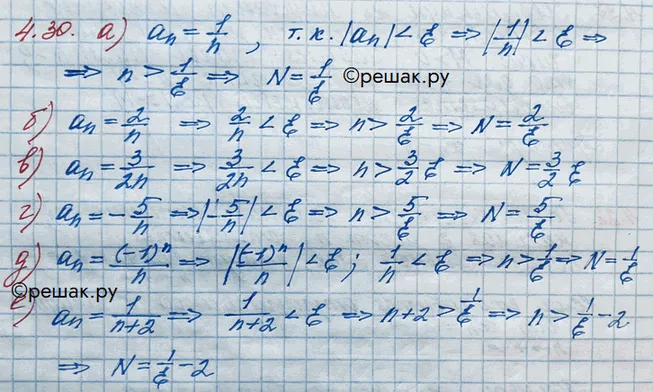 4.30. а) aₙ = 1/n, т.к. |aₙ| < ℰ ⇒ |1/n| < ℰ ⇒
⇒ n > 1/ℰ ⇒ N = 1/ℰ ©решак.ру
б) aₙ = 2/n ⇒ 2/n < ℰ ⇒ n > 2/ℰ ⇒ N = 2/ℰ
в) aₙ = 3/2n ⇒ 3/2n < ℰ ⇒ n > 3/2 ℰ ⇒ N = 3/2 ℰ
г) aₙ = -5/n ⇒ |-5/n| < ℰ ⇒ n > 5/ℰ ⇒ N = 5/ℰ
д) aₙ = (-1)ⁿ/n ⇒ |(-1)ⁿ/n| < ℰ; 1/n < ℰ ⇒ n > 1/ℰ ⇒ N = 1/ℰ
©решак.ру
е) aₙ = 1/(n+2) ⇒ 1/(n+2) < ℰ ⇒ n+2 > 1/ℰ ⇒ n > 1/ℰ - 2
⇒ N = 1/ℰ - 2